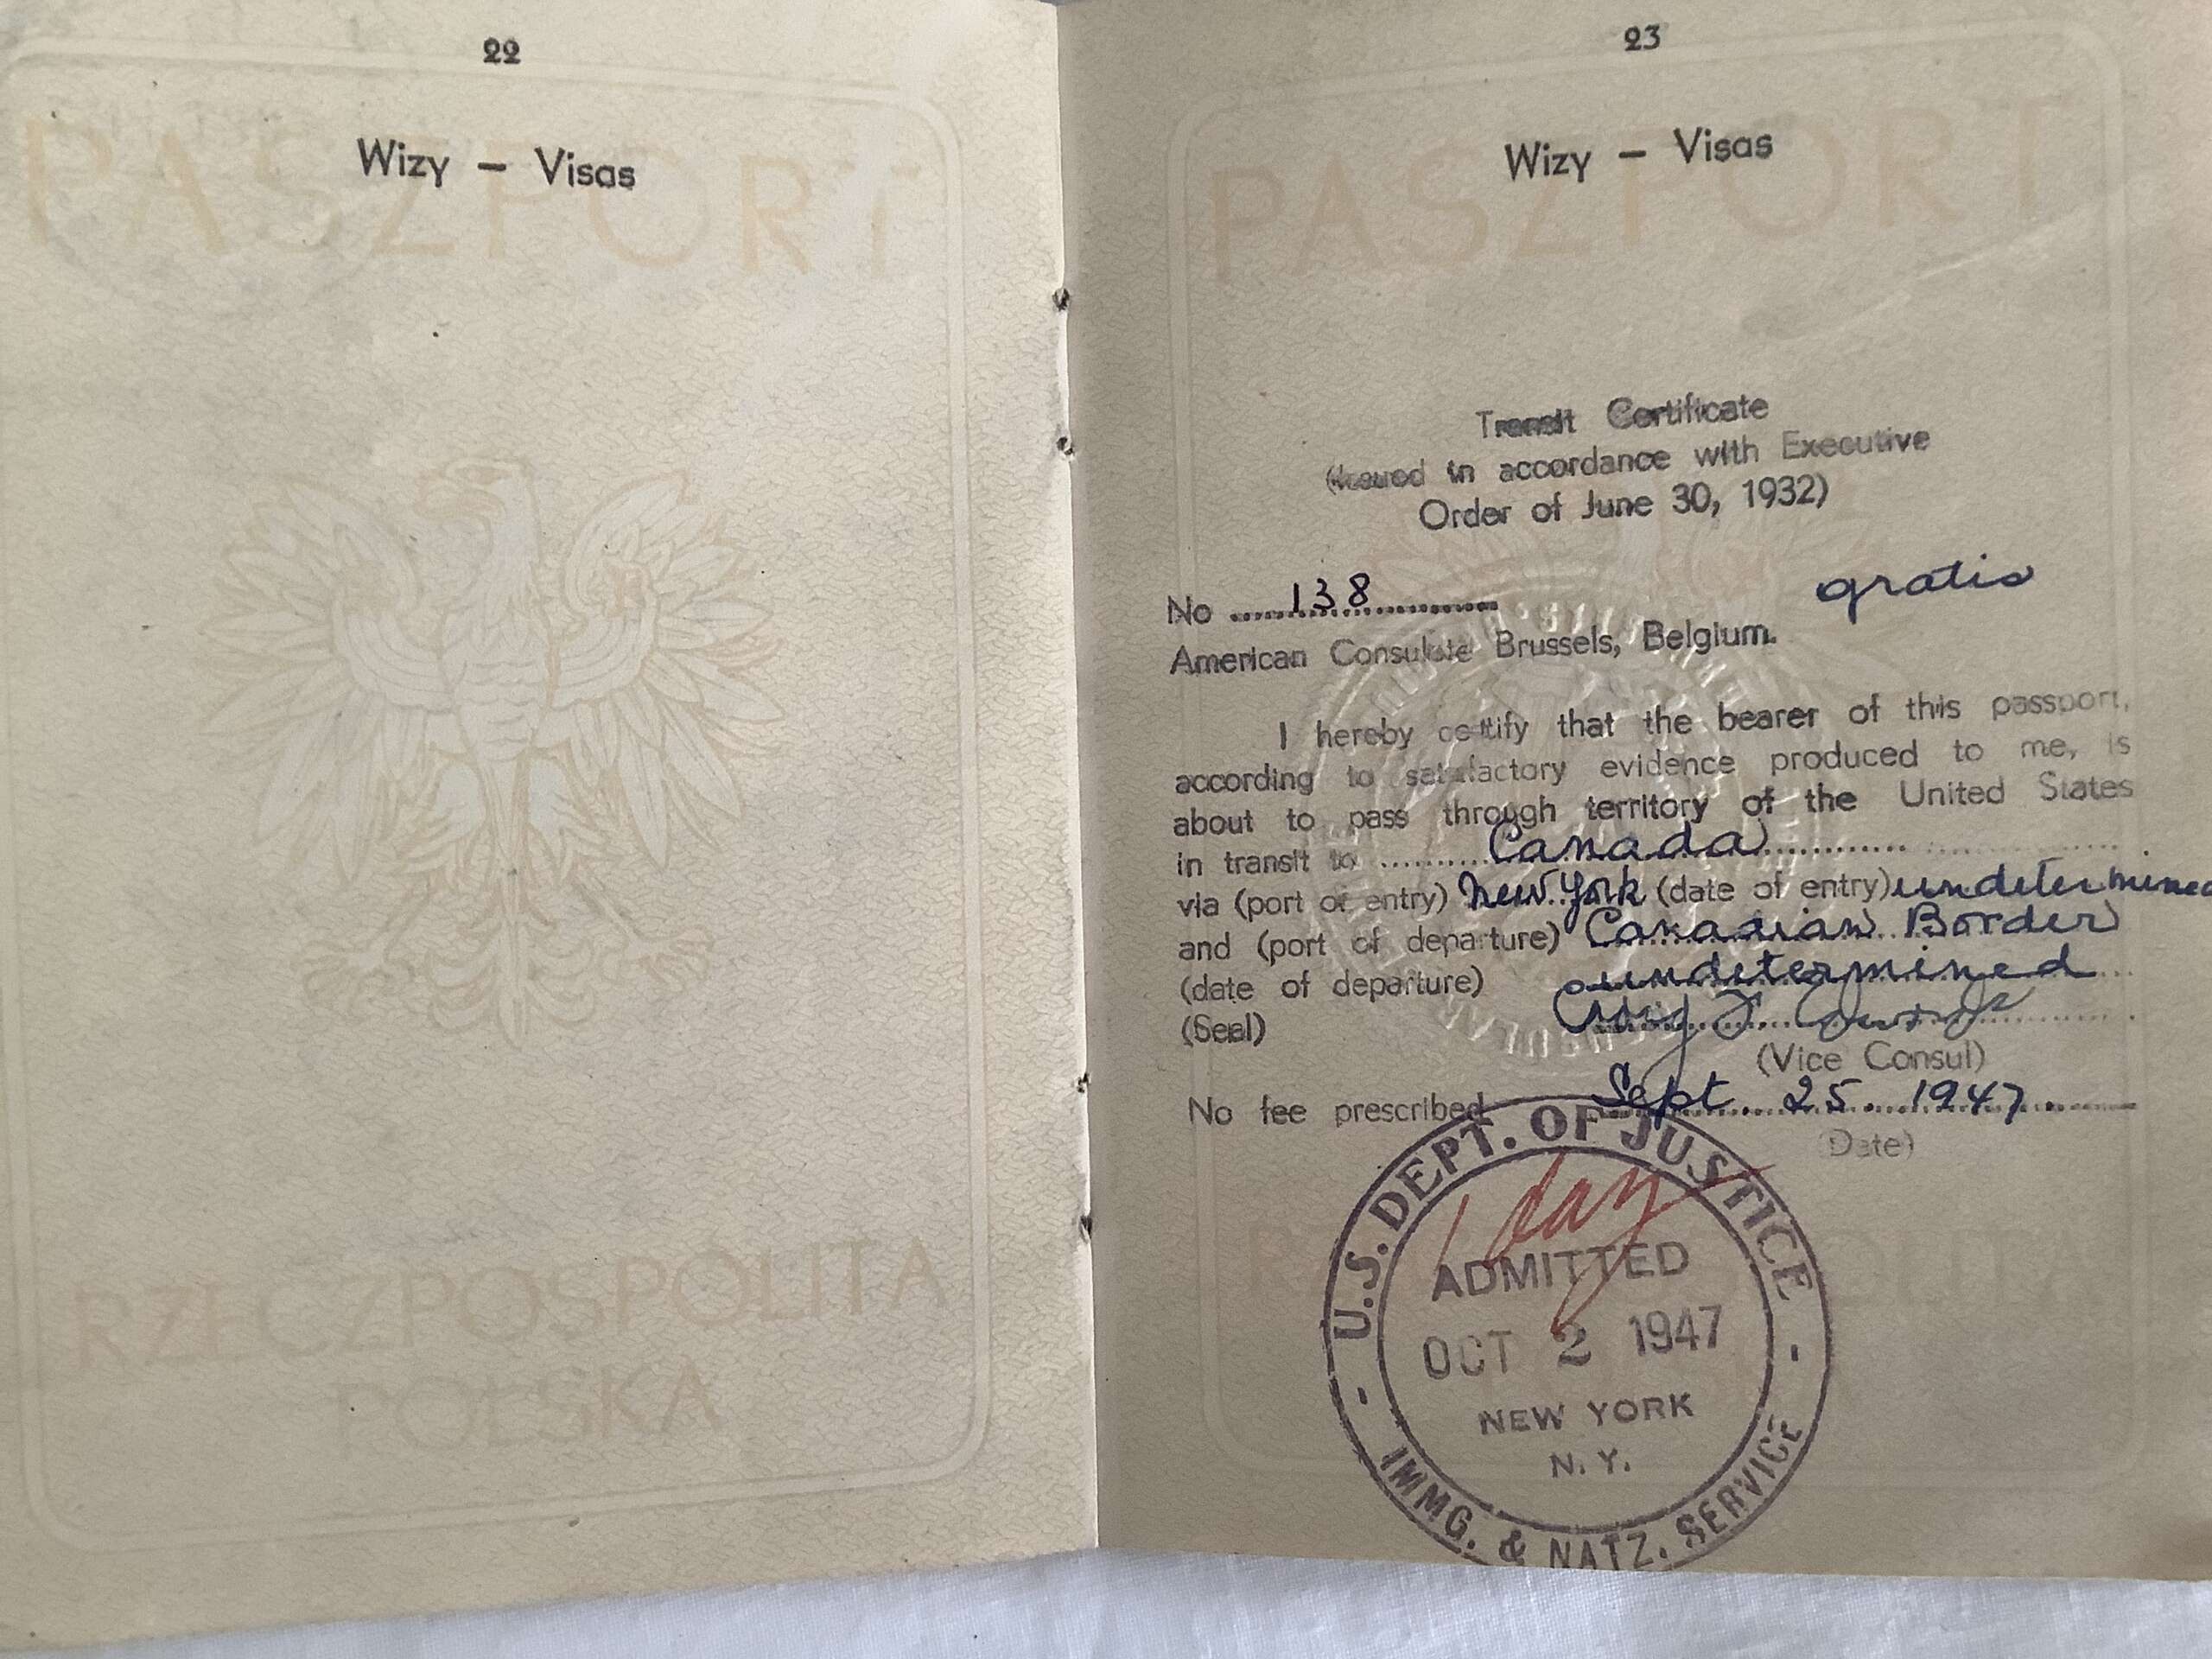 22
PASZPORT
Wizy – Visas
RZECZPOSPOLITA
POLSKA
23
PASZPORT
Wizy – Visas
Transit Certificate
(Issued in accordance with Executive
Order of June 30, 1932)
gratis
No 138
American Consulate Brussels, Belgium.
I hereby certify that the bearer of this passport,
according to satisfactory evidence produced to me, is
about to pass through territory of the United States
in transit to Canada
via (port of entry) New York (date of entry) undetermined
and (port of departure) Canadian Border
(date of departure) undetermined
(Seal)
(Vice Consul)
No fee prescribed Sept. 25. 1947
(Date)
U.S. DEPT. OF JUSTICE
1 day
ADMITTED
OCT 2 1947
NEW YORK
N.Y.
IMMG. & NATZ. SERVICE